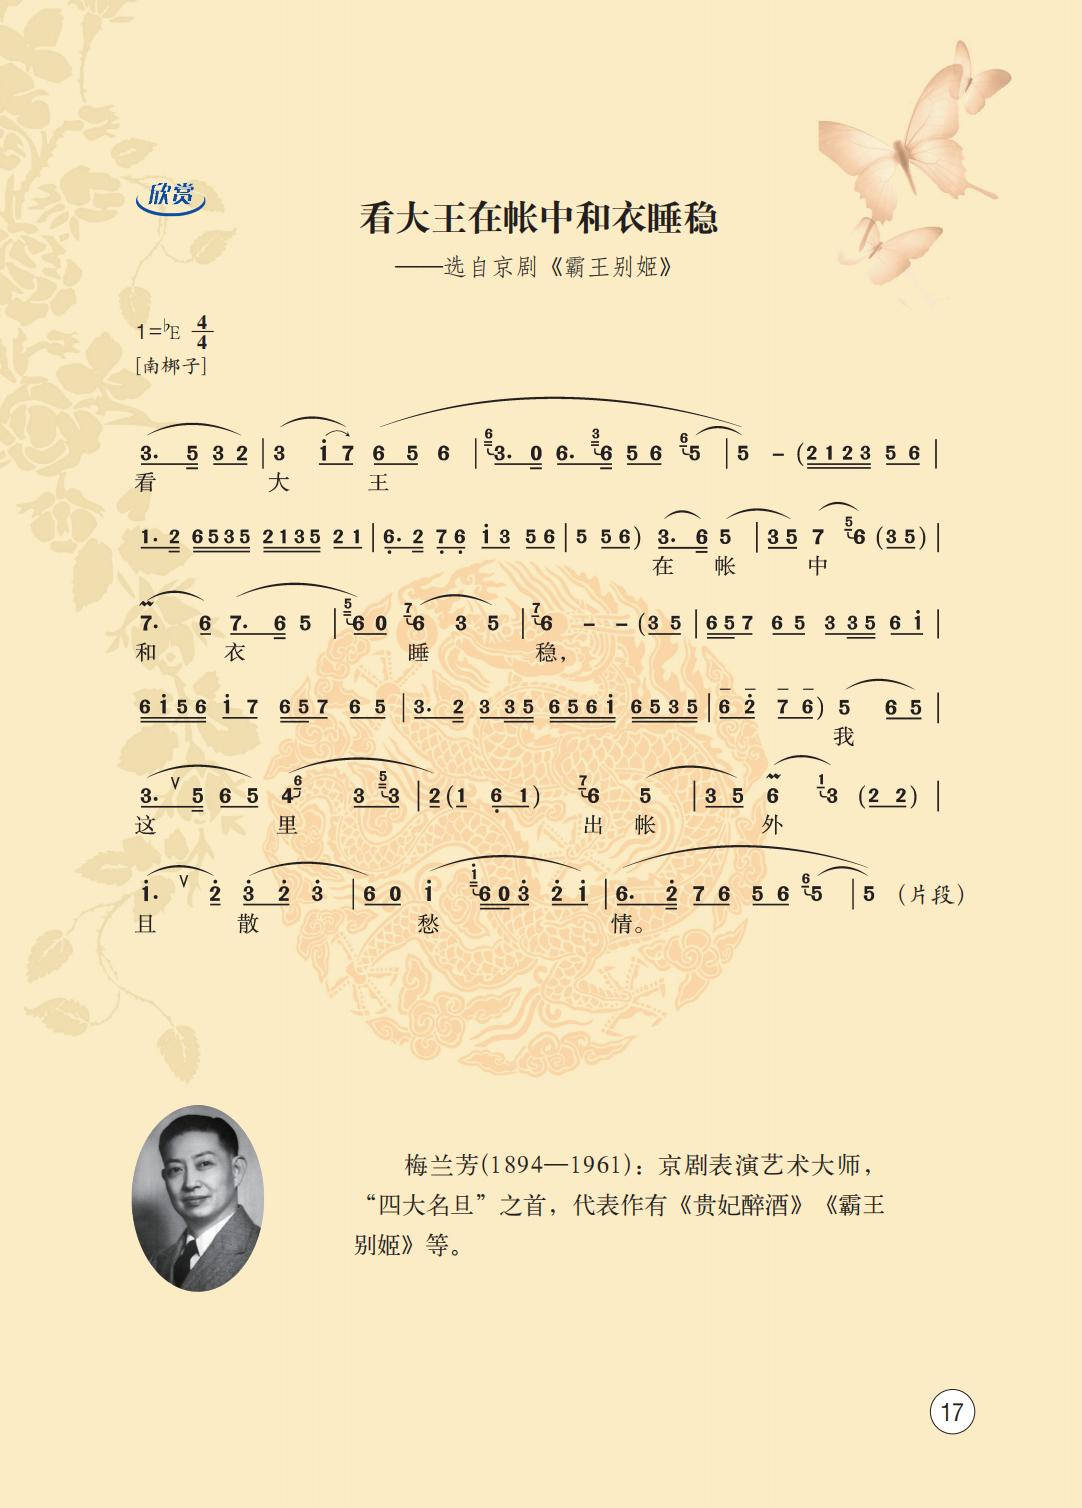 欣赏
看大王在帐中和衣睡稳
——选自京剧《霸王别姬》
1=♭E 4/4
[南梆子]
3. 5 3 2 | 3 i 7 6 5 6 | 6 3. 0 6. 3 6 5 6 6 5 | 5 – (2 1 2 3 5 6 |
看 大 王
1. 2 6 5 3 5 2 1 3 5 2 1 | 6. 2 7 6 i 3 5 6 | 5 5 6) 3. 6 5 | 3 5 7 5 6 (3 5) |
在 帐 中
7. 6 7. 6 5 | 5 6 0 7 6 3 5 | 7 6 – – (3 5 | 6 5 7 6 5 3 3 5 6 i |
和 衣 睡 稳,
6 i 5 6 i 7 6 5 7 6 5 | 3. 2 3 3 5 6 5 6 i 6 5 3 5 | 6 2 7 6) 5 6 5 |
我
3. V 5 6 5 4 6 3 5 3 | 2 (1 6 1) 7 6 5 | 3 5 6 1 3 (2 2) |
这 里 出 帐 外
i. V 2 3 2 3 | 6 0 i i 6 0 3 2 i | 6. 2 7 6 5 6 6 5 | 5 (片段)
且 散 愁 情。
梅兰芳(1894—1961)：京剧表演艺术大师，
“四大名旦”之首，代表作有《贵妃醉酒》《霸王
别姬》等。
17